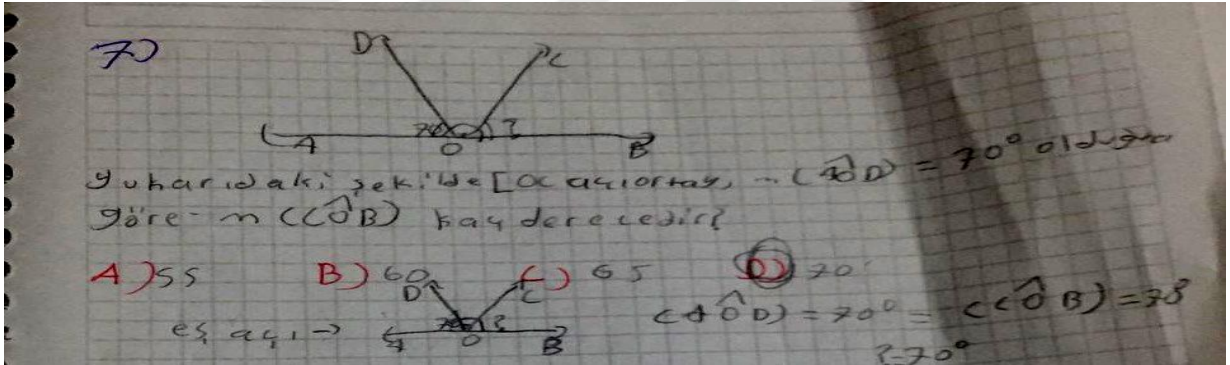 7)
D C
70 ?
A O B
yuharıdaki şekilde [OC açıortay, m(AÔD) = 70° olduğuna
göre m(CÔB) kaç derecedir?
A) 55 B) 60 C) 65 D) 70
D C
eş açı → A O B ? (AÔD) = 70° = (CÔB) = 70
? = 70°